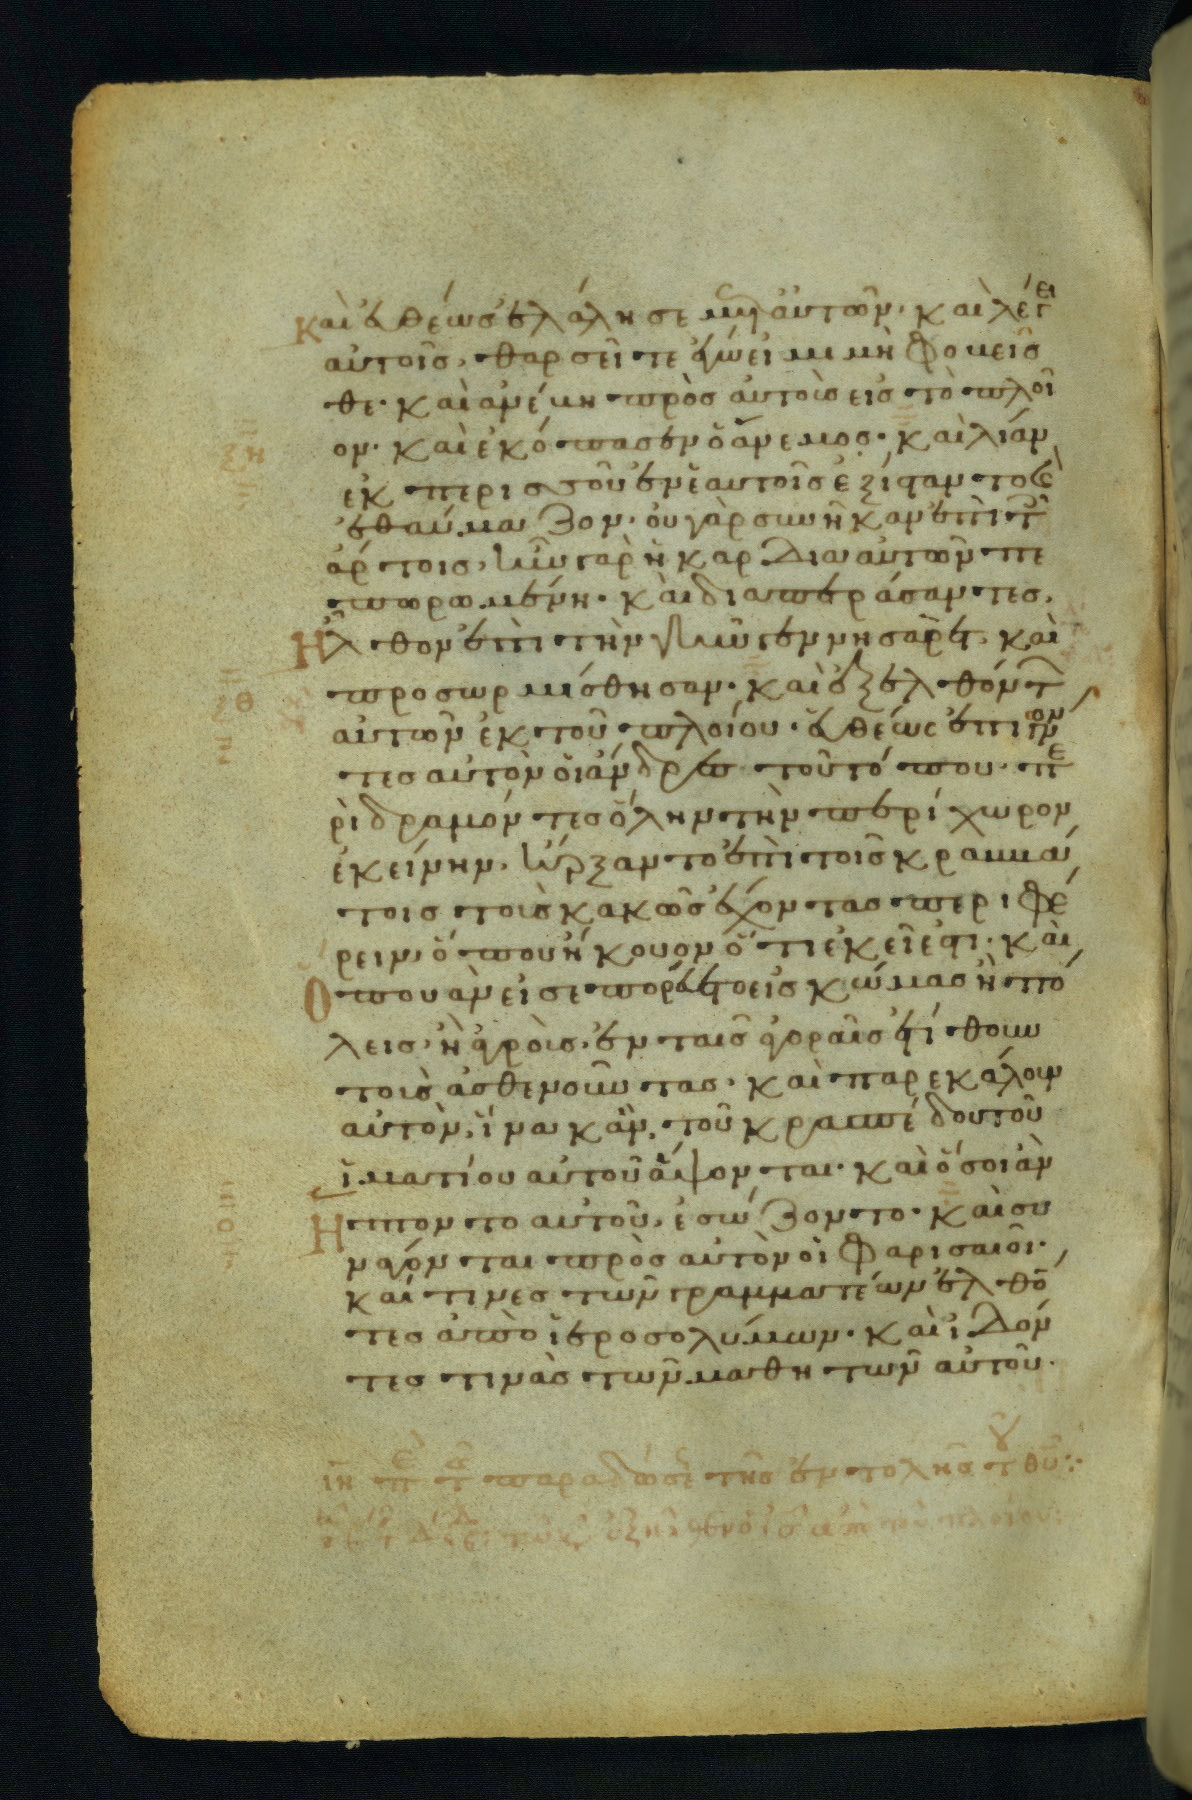 Καὶ εὐθέως ἐλάλησε μετ αὐτῶν· καὶ λέγει
αὐτοῖς, θαρσεῖτε ἐγώ εἰμι μὴ φοβεῖσ
θε· καὶ ἀνέβη πρὸς αὐτοὺς εἰς τὸ πλοῖ
ον· καὶ ἐκόπασεν ὁ ἄνεμος· καὶ λίαν
ἐκ περισσοῦ ἐν ἑαυτοῖς ἐξίσταντο καὶ
ἐθαύμαζον· οὐ γὰρ συνῆκαν ἐπὶ τοῖς
ἄρτοις, ἦν γὰρ ἡ καρδία αὐτῶν πε
πωρωμένη· καὶ διαπεράσαντες,
Ἦλθον ἐπὶ τὴν γῆν γεννησαρέτ, καὶ
προσωρμίσθησαν· καὶ ἐξελθόντων
αὐτῶν ἐκ τοῦ πλοίου· εὐθέως ἐπιγνόν
τες αὐτὸν οἱ ἄνδρες τοῦ τόπου· πε
ριδραμόντες ὅλην τὴν περίχωρον
ἐκείνην, ἤρξαντο ἐπὶ τοῖς κραββά
τοις τοὺς κακῶς ἔχοντας περιφέ
ρειν· ὅπου ἤκουον ὅτι ἐκεῖ ἐστι· καὶ
Ὅπου ἂν εἰσεπορεύετο εἰς κώμας ἢ πό
λεις, ἢ ἀγροὺς, ἐν ταῖς ἀγοραῖς ἐτίθουν
τοὺς ἀσθενοῦντας· καὶ παρεκάλουν
αὐτὸν, ἵνα κἂν, τοῦ κρασπέδου τοῦ
ἱματίου αὐτοῦ ἅψονται· καὶ ὅσοι ἂν
Ἥπτοντο αὐτοῦ, ἐσώζοντο· καὶ συ
νάγονται πρὸς αὐτὸν οἱ φαρισαῖοι·
καί τινες τῶν γραμματέων ἐλθό
τες ἀπὸ ἱεροσολύμων· καὶ ἰδόν
τες τινὰς τῶν μαθητῶν αὐτοῦ·
ιη πε τ παραδώσε τῆς ἐντολῆς τοῦ θυ:·